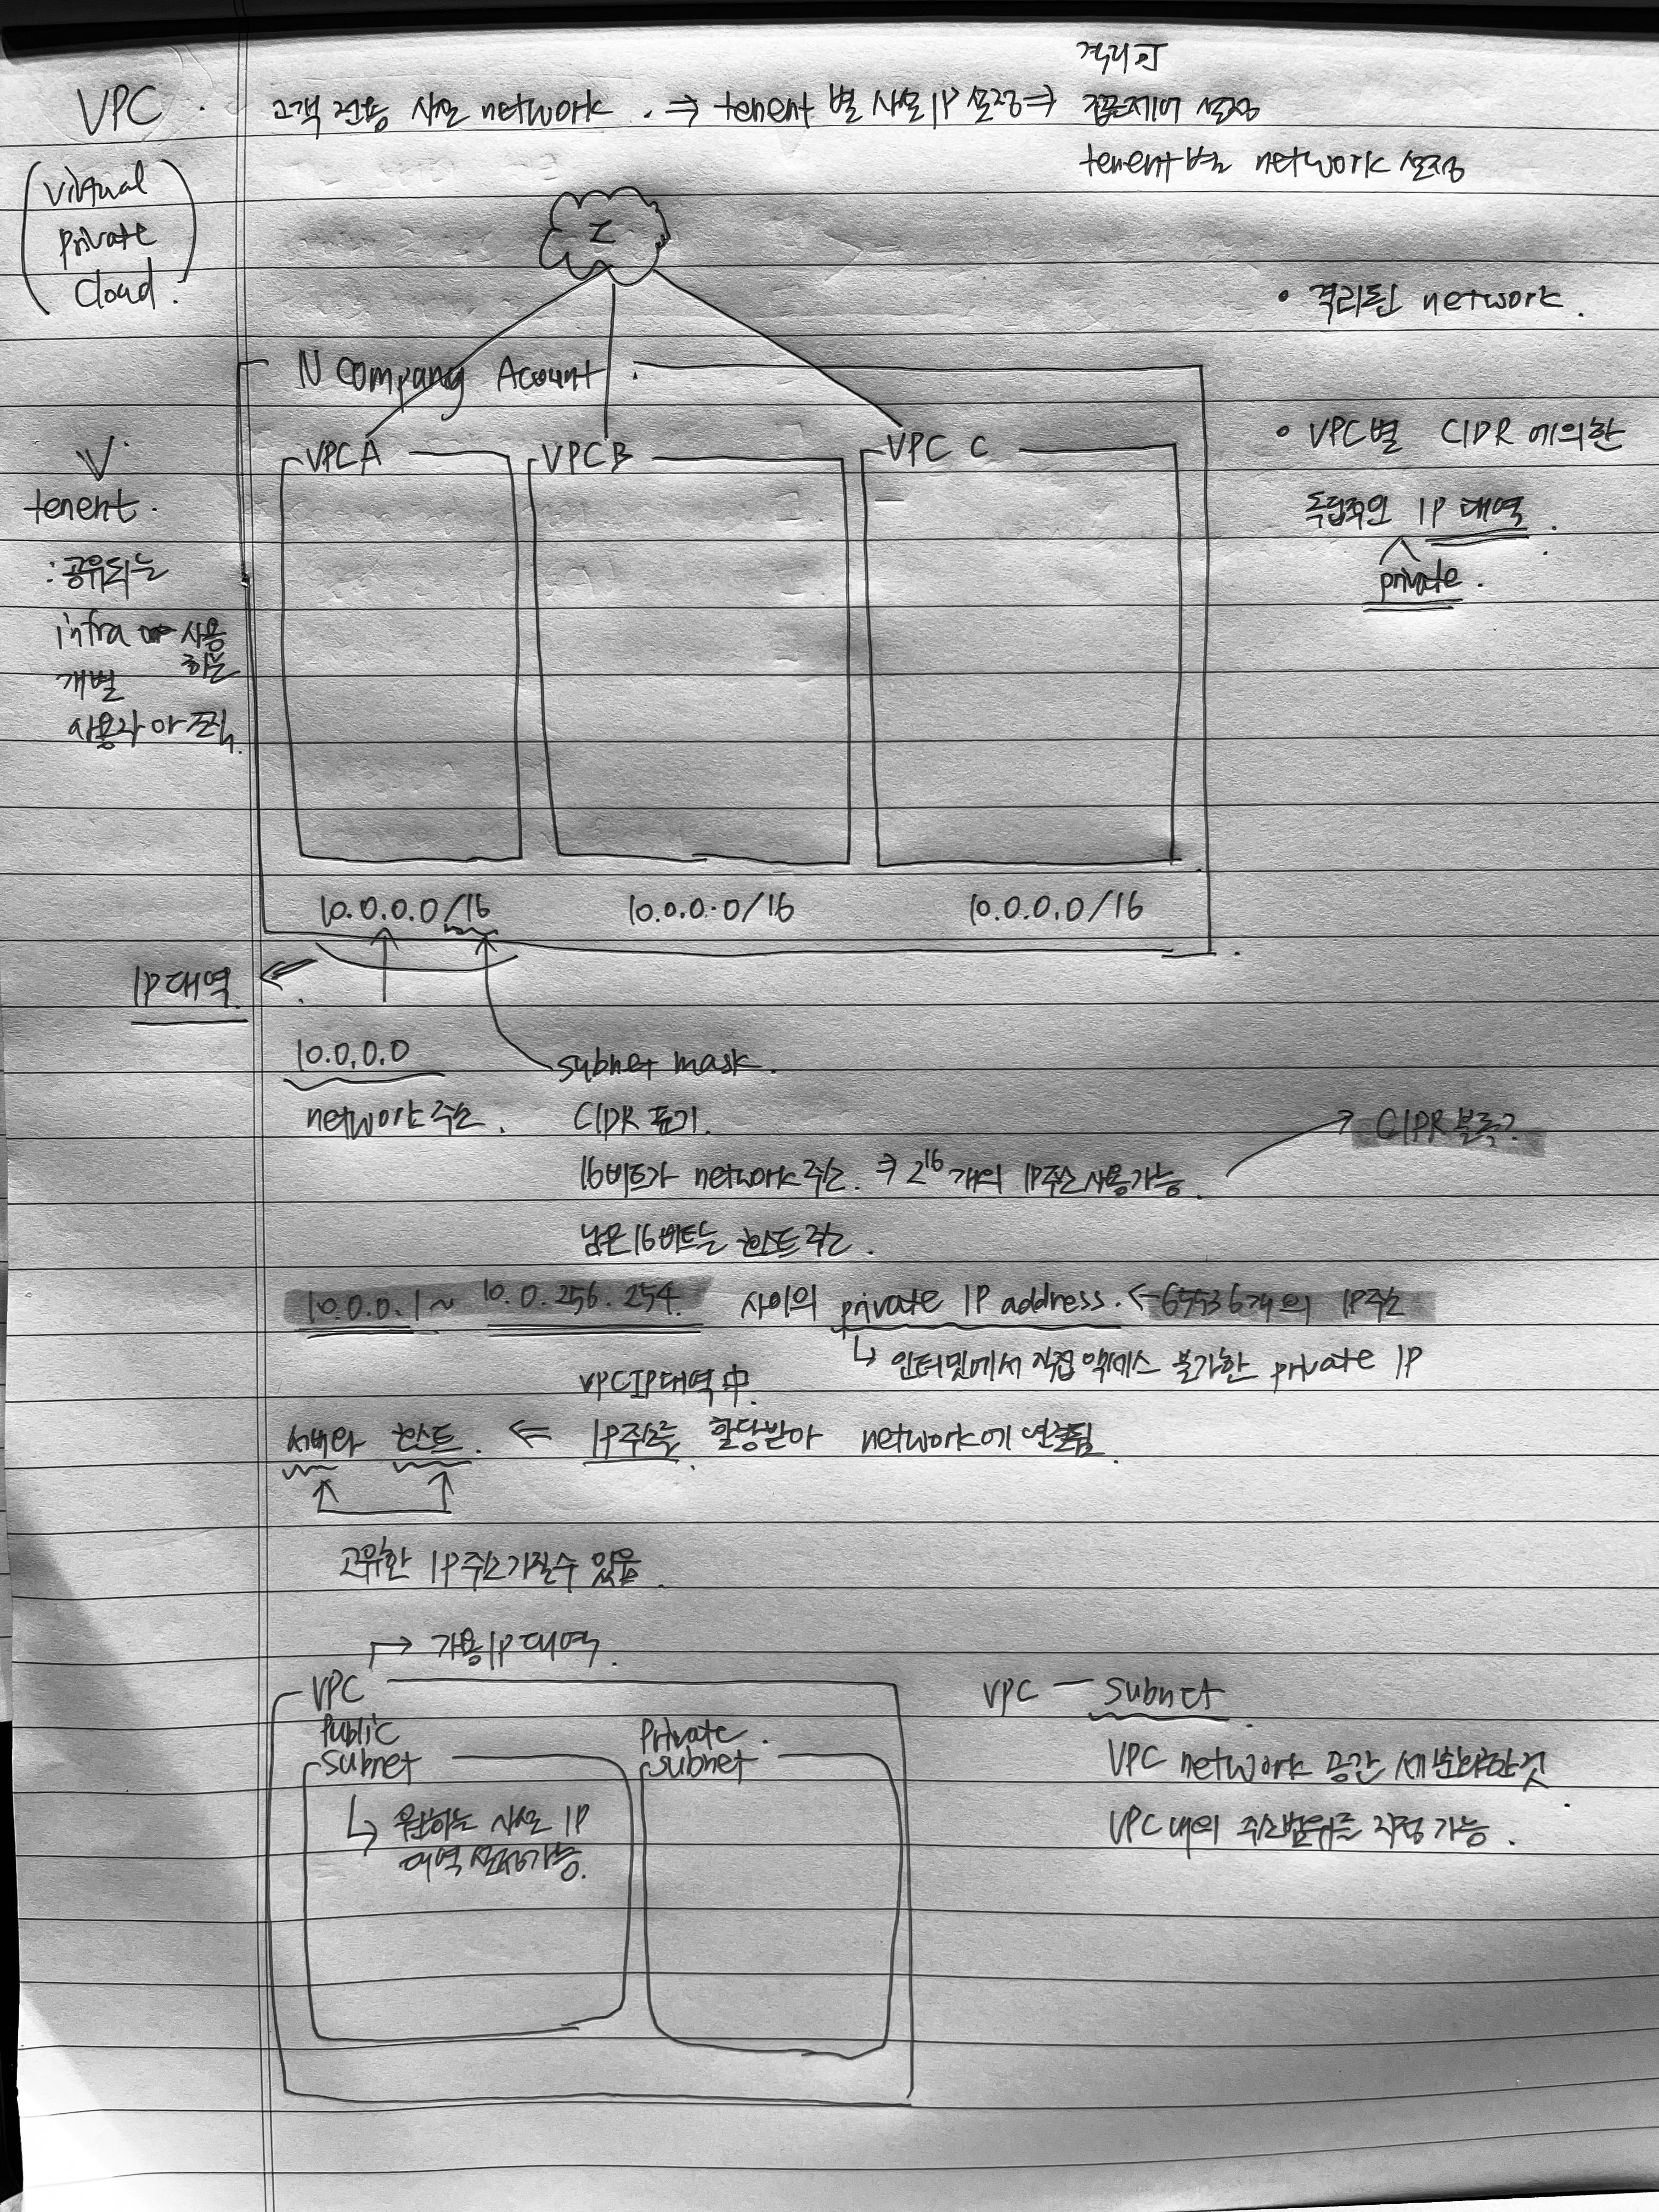 격리 可
VPC . 고객 전용 사설 network . ⇒ tenent 별 사설 IP 설정 ⇒ 접근제어 설정
tenent별 network 설정
(virtual
private
cloud.)
I
• 격리된 network .
N Company Acount .
• VPC별 CIDR에 의한
VPC A VPC B VPC C
독립적인 IP 대역 .
private .
V
tenent .
: 공유되는
infra 사용
하는
개별
사용자 or 조직.
10.0.0.0/16 10.0.0.0/16 10.0.0.0/16
IP 대역
10.0.0.0 subnet mask .
network 주소 . CIDR 표기 . CIDR 블록?
16비트가 network 주소. ⇒ 2^16 개의 IP주소 사용가능 .
남은 16비트는 호스트 주소 .
10.0.0.1 ~ 10.0.256.254. 사이의 private IP address. ← 65536개의 IP주소
↳ 인터넷에서 직접 액세스 불가한 private IP
VPC IP대역 中
서버와 호스트 . ⇐ IP주소를 할당받아 network에 연결됨 .
고유한 IP 주소 가질수 있음 .
→ 가용 IP 대역 .
VPC VPC — subnet .
Public Private .
subnet subnet
VPC network 공간 세분화한것 .
↳ 원하는 사설 IP
대역 설정가능.
VPC 내의 주소범위를 지정 가능 .